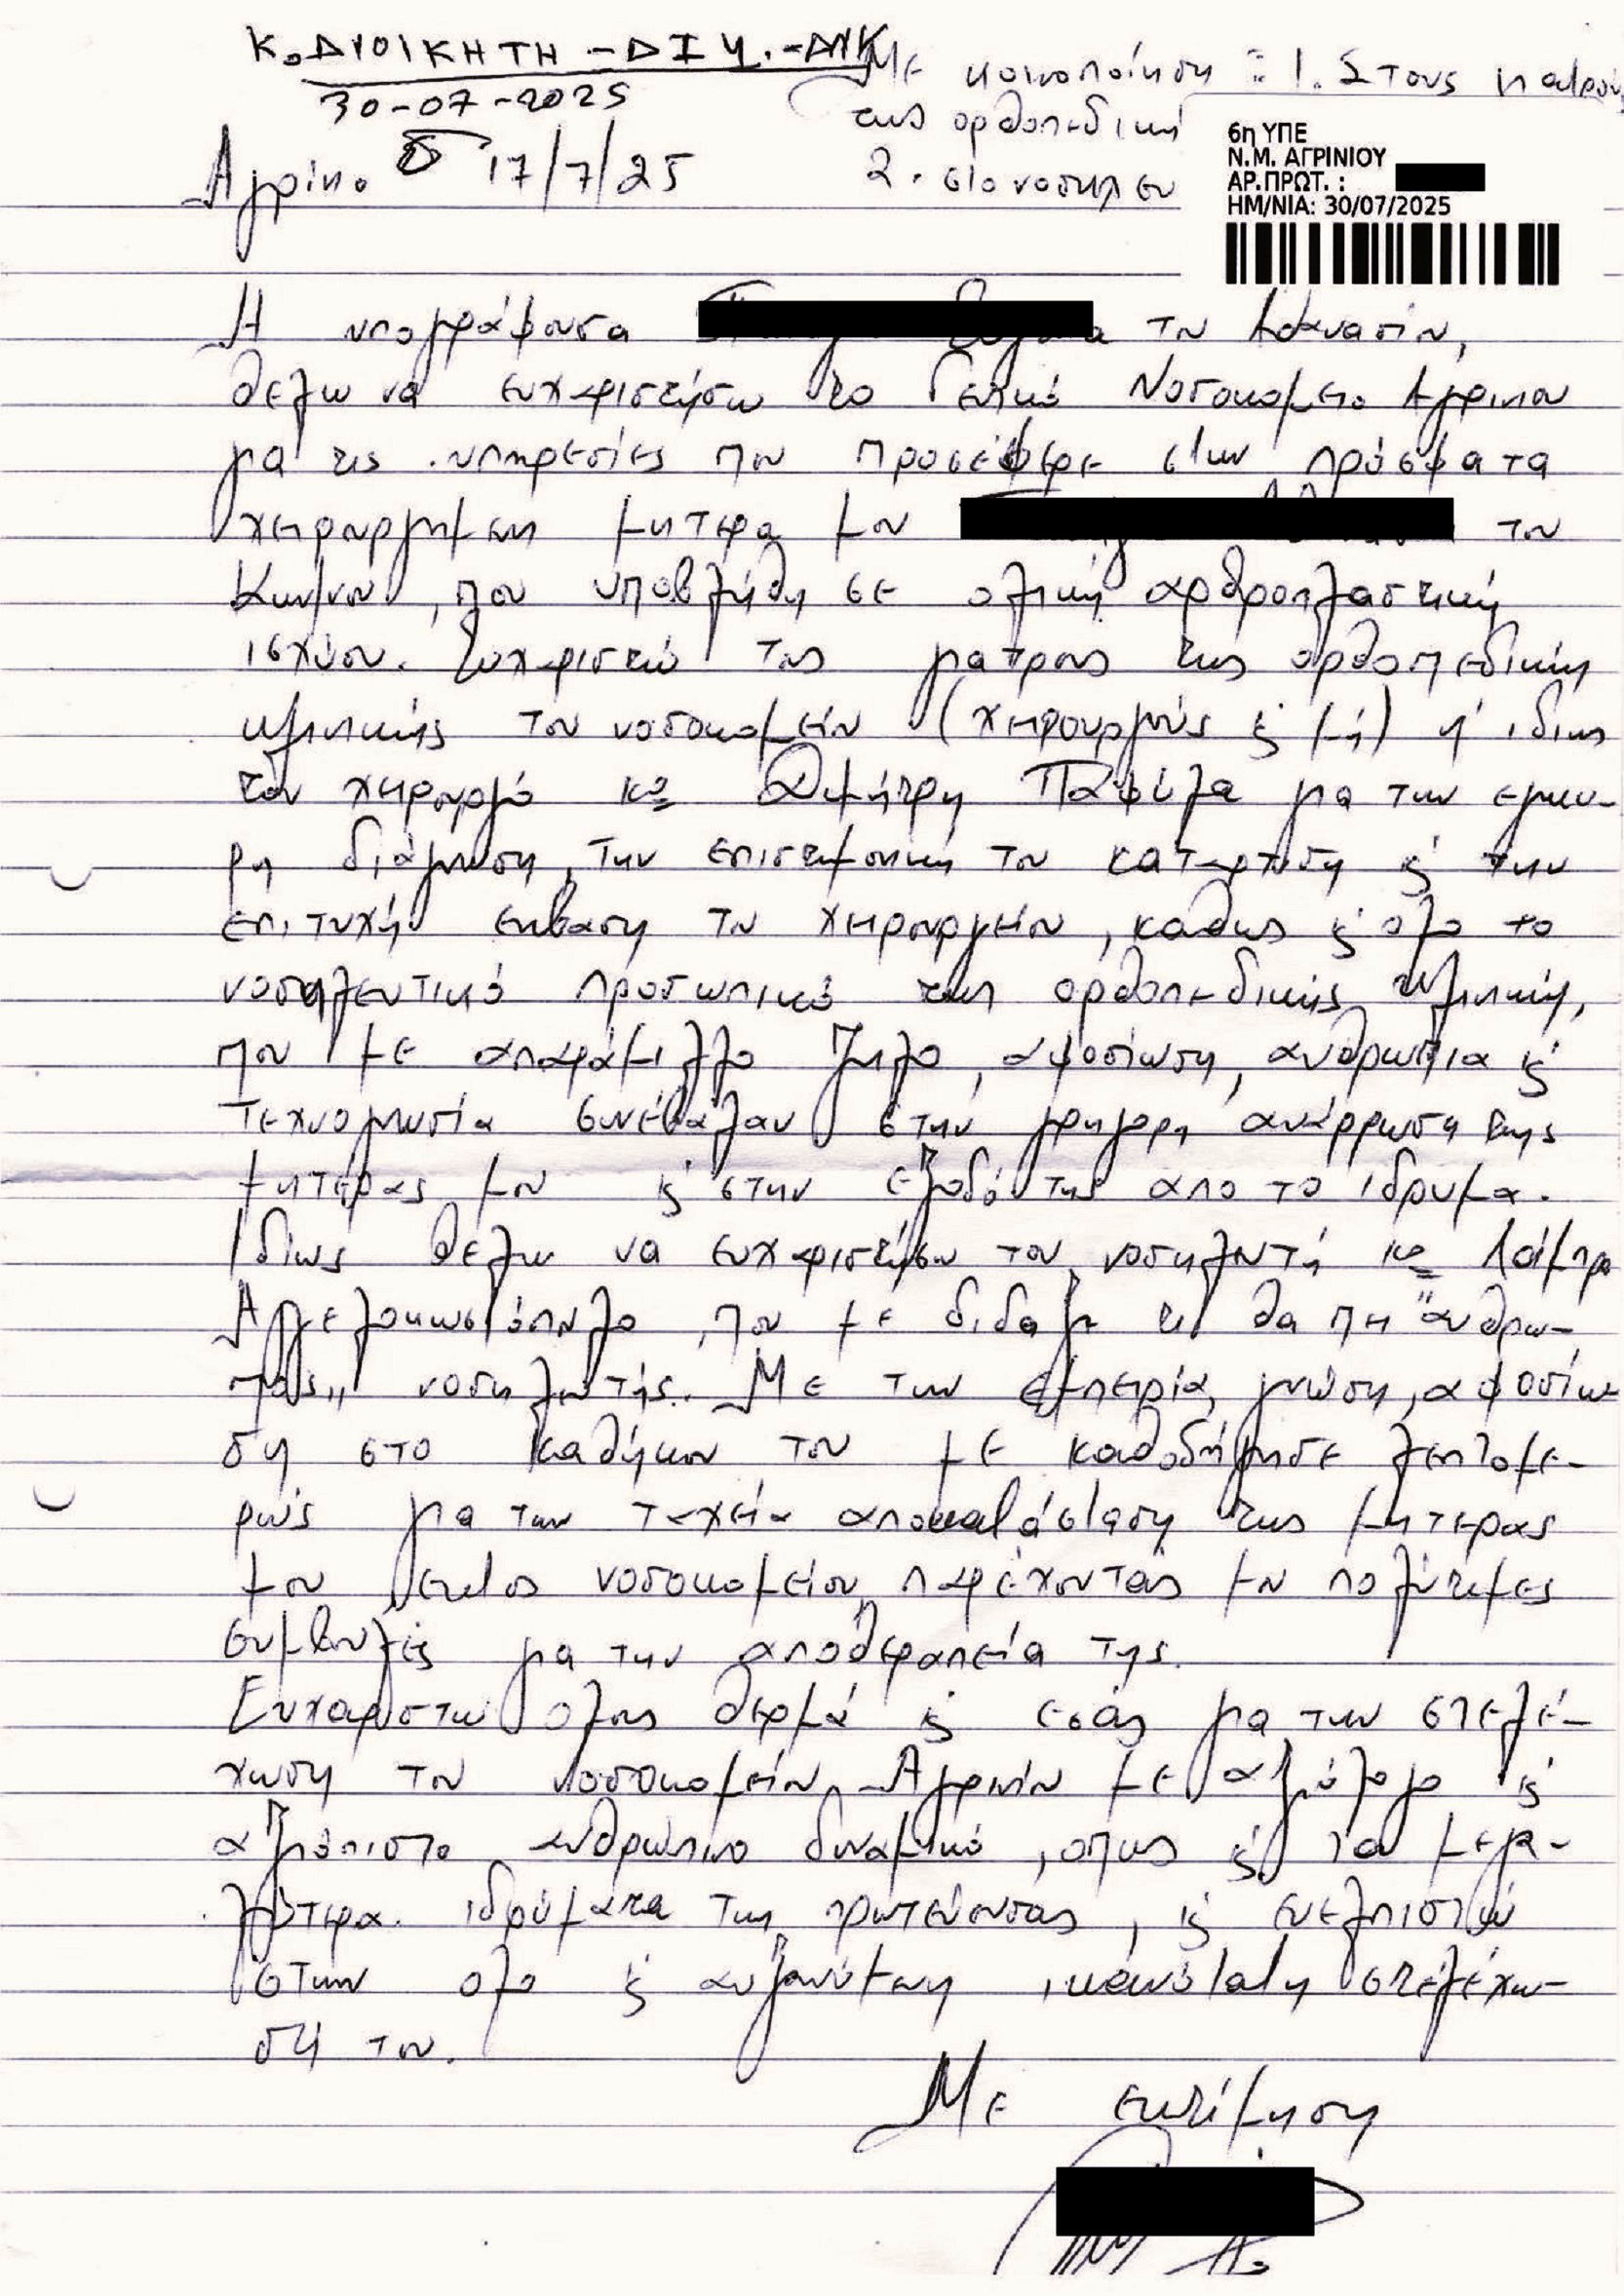 Κ. ΔΙΟΙΚΗΤΗ - ΔΙΥ. - ΔΝΚ
30-07-2025
Με κοινοποίηση : 1. Στους γιατρούς
της ορθοπεδική
2. στο νοσηλευ
6η ΥΠΕ
Ν.Μ. ΑΓΡΙΝΙΟΥ
ΑΡ.ΠΡΩΤ. :
ΗΜ/ΝΙΑ: 30/07/2025
Αγρίνιο 17/7/25
Η υπογράφουσα του Αθανασίου,
θελω να ευχαριστήσω το Γενικό Νοσοκομειο Αγρινιου
για τις υπηρεσίες που προσέφερε στην πρόσφατα
χειρουργημενη μητερα μου του
Κων/νου, που υποβλήθη σε ολική αρθροπλαστική
ισχύου. Ευχαριστώ τους γιατρους της ορθοπεδικής
κλινικής του νοσοκομείου (χειρουργούς κ' μή) ή ιδίως
τον χειρουργό κο Δημήτρη Παφίλα για την εγκυ-
ρη διάγνωση, την επιστημονική του καταρτιση κ' την
επιτυχή εκβαση του χειρουργείου, καθως κ' ολο το
νοσηλευτικό προσωπικό της ορθοπεδικής κλινικής,
που με απαράμιλλο ζηλο, αφοσίωση, ανθρωπια κ'
τεχνογνωσία συνέβαλαν στην γρηγορη ανάρρωση της
μητέρας μου κ' στην εξοδό της απο το ιδρυμα.
Ιδίως θελω να ευχαριστήσω τον νοσηλευτή κο Λάμπρο
Αγγελοκωστόπουλο, που με διδαξε τι θα πει "ανθρω-
πος" νοσηλευτής. Με την εμπειρία, γνώση, αφοσίω
ση στο καθήκον του με καθοδήγησε λεπτομε-
ρώς για την ταχεία αποκατάσταση της μητερας
μου εκτος νοσοκομείου, παρέχοντας μου πολύτιμες
συμβουλές για την αποθεραπεία της.
Ευχαριστω ολους θερμά κ' εσάς για την στελέ-
χωση του νοσοκομείου Αγρινίου με αξιόλογο κ'
αξιόπιστο ανθρώπινο δυναμικό, οπως κ' τα μεγα-
λύτερα ιδρύματα της πρωτεύουσας, κ' ευελπιστώ
στην ολο κ' αυξανόμενη ικανόταtη στελέχω-
σή του.
Με εκτίμηση